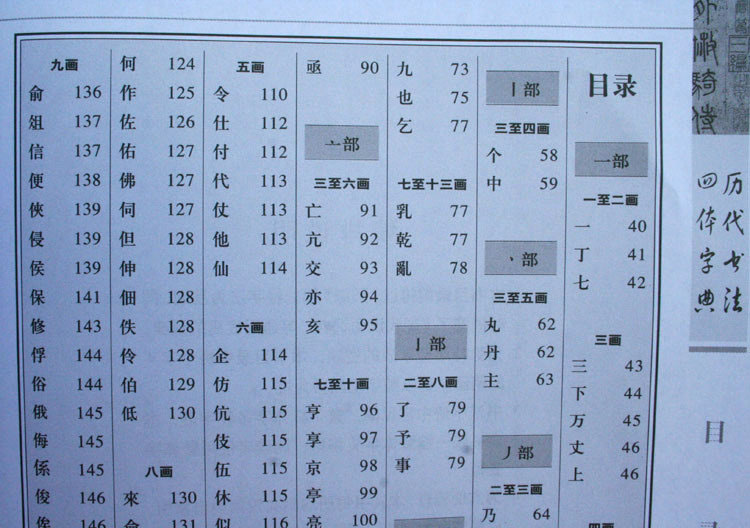 历代书法
四体字典
目
目录
一部
一至二画
一 40
丁 41
七 42
三画
三 43
下 44
万 45
丈 46
上 46
四画
丨部
三至四画
个 58
中 59
丶部
三至五画
丸 62
丹 62
主 63
丿部
二至三画
乃 64
九 73
也 75
乞 77
七至十三画
乳 77
乾 77
亂 78
亅部
二至八画
了 79
予 79
事 79
亟 90
亠部
三至六画
亡 91
亢 92
交 93
亦 94
亥 95
七至十画
亨 96
享 97
京 98
亭 99
亮 100
五画
令 110
仕 112
付 112
代 113
仗 113
他 113
仙 114
六画
企 114
仿 115
伉 115
伎 115
伍 115
休 115
似 116
何 124
作 125
佐 126
佑 127
佛 127
伺 127
但 128
伸 128
佃 128
佚 128
伶 128
伯 129
低 130
八画
來 130
131
九画
俞 136
俎 137
信 137
便 138
俠 139
侵 139
侯 139
保 141
修 143
俘 144
俗 144
俄 145
侮 145
係 145
俊 146
俟 146